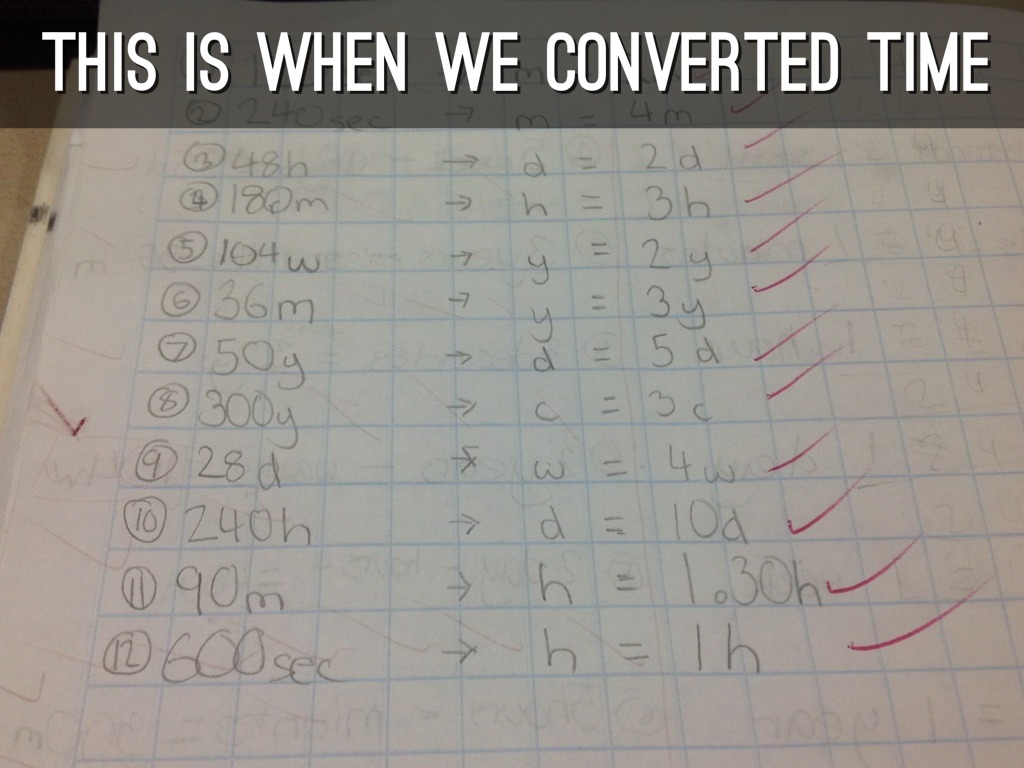 THIS IS WHEN WE CONVERTED TIME
② 240sec → m = 4m
③ 48h → d = 2d
④ 180m → h = 3h
⑤ 104w → y = 2y
⑥ 36m → y = 3y
⑦ 50y → d = 5d
⑧ 300y → c = 3c
⑨ 28d → w = 4w
⑩ 240h → d = 10d
⑪ 90m → h = 1.30h
⑫ 600sec → h = 1h